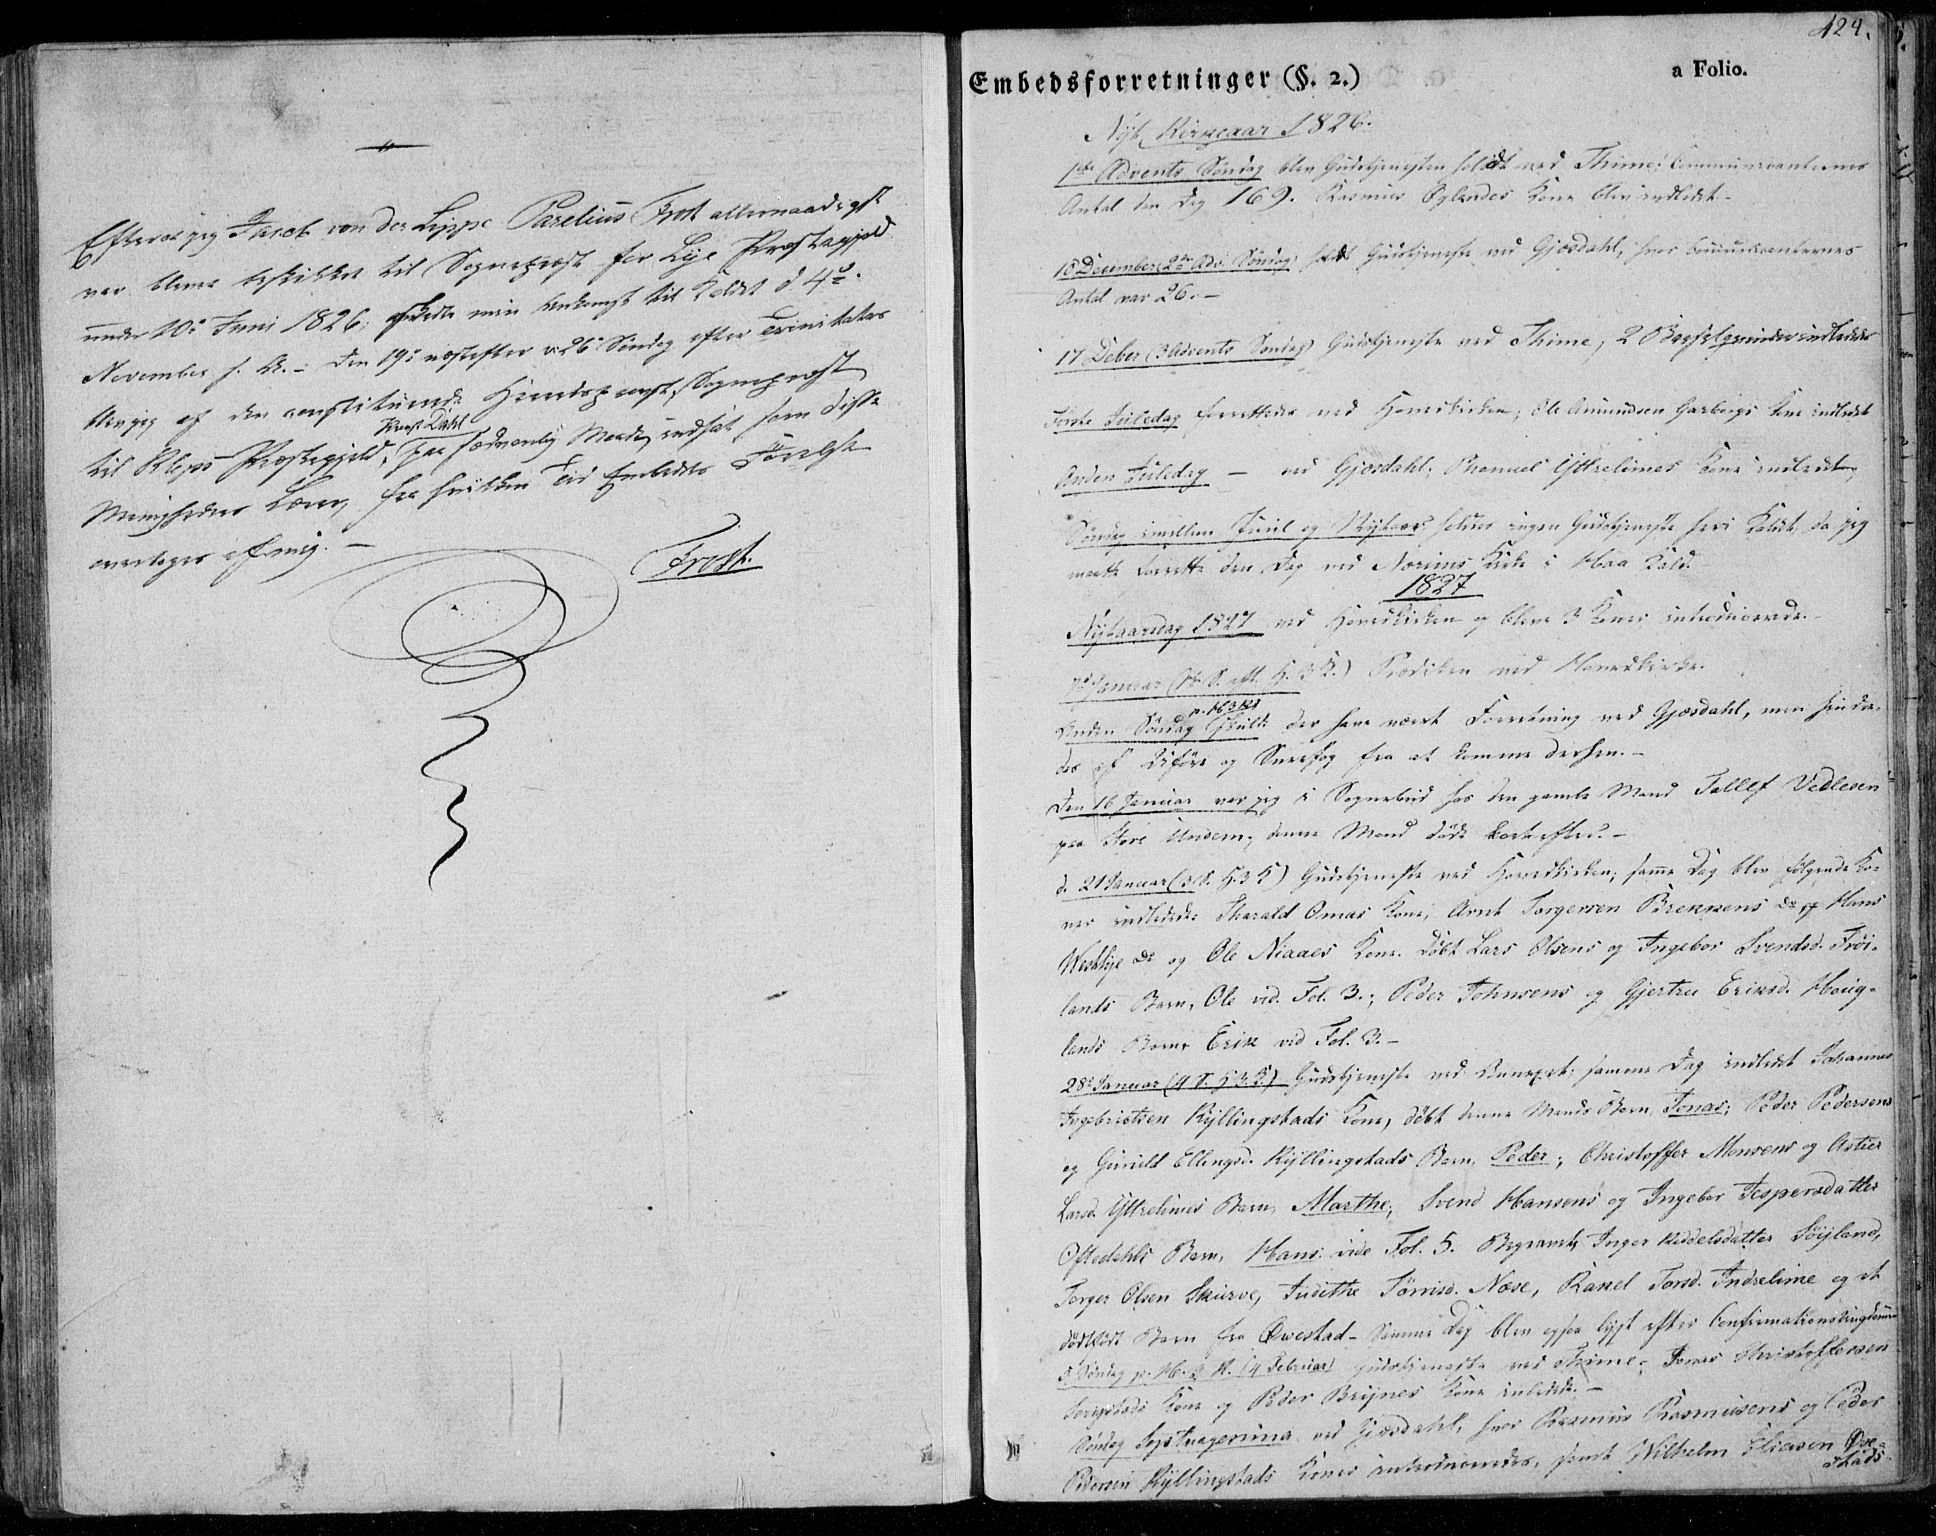 Efterat jeg Jacob von der Lippe Parelius Frost allernaadigst
var bleven beskikket til Sognepræst for Lye Præstegjeld
under 10de Juni 1826, skede min Ankomst til Kaldet d 4de
November s. A. – Den 19de næstefter v: 26de Søndag efter Trinitatis
blev jeg af den constituerede Herredsprovst, Sognepræst
Provst Dahl
til Kleps Præstegjeld, paa sædvanlig Maade indsat som disse
Menigheders Lærer, fra hvilken Tid Embedets Førelse
overtages af mig. –
Frost.
424.
Embedsforretninger (§. 2.)
a Folio.
Nyt Kirkeaar 1826.
1ste Advents Søndag blev Gudstjenesten holdt ved Thime; Communicanternes
Antal den Dag 169. Rasmus Cylandes Kone blev indledet –
10 December (2den Adv. Søndag) holdt Gudstjeneste ved Gjæsdahl, hvor Communicanternes
Antal var 26. –
17 Decber (3 Advents Søndag) Gudstjeneste ved Thime, 2 Barselqvinder indledede
Første Juledag forrettede ved Hovedkirken; Ole Amundsen Garbergs Kone indledet
Anden Juledag — ved Gjæsdahl; Phanuel Yttrelimes Kone indledet
Søndag imellem Juul og Nytaar holdtes ingen Gudstjeneste heri Kaldet, da jeg
maatte forrette den Dag ved Nærims Kirke i Haa Kald.
1827
Nytaarsdag 1827 ved Hovedkirken og bleve 3 Koner introducerede. –
7de Januar (1te S. eft. H. 3 K.) Prædiken ved Hovedkirke.
p. H 3 K
Anden Søndag skulde der have været Forretning ved Gjæsdahl, men hindre-
des af Uføre og Sneefog fra at komme derhen. –
Den 16 Januar var jeg i Sognebud hos den gamle Mand Tollef Vedlesen
paa Store Undem, denne Mand døde kort efter. –
d. 21 Januar (3 S. H. 3 K) Gudstjeneste ved Hovedkirken; samme Dag blev følgende Ko-
ner indledede: Tharald Omas Kone, Arnt Torgersen Brekkens do og Hans
Westlye do og Ole Niaaes Kone. Døbt Lars Olsens og Ingebor Svendsd. Frøi-
lands Barn, Ole vid. Fol. 3.; Peder Johnsens og Gjertru Eriksd. Houg-
lands Barn Erik vid Fol. 3. –
28de Januar (4 S. H. 3. K.) Gudstjeneste ved Annexet; samme Dag indledet Johannes
Ingebrictsen Kyllingstads Kone, døbt denne Mands Barn Jonas; Peder Pedersens
og Gunild Ellingsd. Kyllingstads Barn, Peder; Christoffer Monsens og Astier
Larsd. Yttrelimes Barn, Marthe; Svend Hansens og Ingebor Jespersdatter
Oftedahls Barn, Hans vide Fol. 5. Begravet, Inger Keddelsdatter Søyland,
Torger Olsen Skurve, Judithe Tørrisd. Nese, Rakel Torsd. Indrelime og et
dødfødt Barn fra Qwestad – Samme Dag blev ogsaa lyst efter Confirmationsungdommen
5 Søndag p. H. 3 K. (4 Februar) Gudstjeneste ved Thime; Jonas Christoffersen
Kone og Peder Brynes Kone indledede. –
Søndag Septuagesima ved Gjæsdahl, hvor Rasmus Rasmusens og Peder
Pedersen Kyllingstads Koner introduceredes, samt Wilhelm Eliasen Qve-
stads